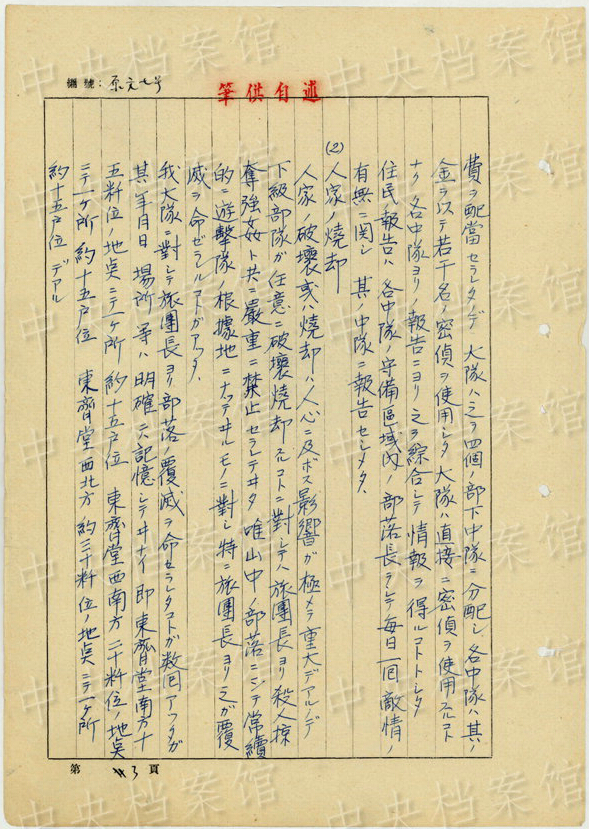 編號：原文七号
述自供筆
費ヲ配當セラレタノデ 大隊ハ之ヲ四個ノ部下中隊ニ分配シ各中隊ハ其ノ
金ヲ以テ若干名ノ密偵ヲ使用シタ大隊ハ直接ニ密偵ヲ使用スルコト
ナク各中隊ヨリノ報告ニヨリ之ヲ綜合シテ情報ヲ得ルコトトシタ
住民ノ報告ハ各中隊ノ守備區域内ノ部落長ヲシテ毎日一回敵情ノ
有無ニ関シ 其ノ中隊ニ報告セシメタ、
(2)人家ノ燒却
人家ノ破壊或ハ燒却ハ人心ニ及ボス影響ガ極メテ重大デアルノデ
下級部隊ガ任意ニ破壊燒却スルコトニ對シテハ旅團長ヨリ殺人掠
奪強姦ト共ニ嚴重ニ禁止セラレテヰタ唯山中ノ部落ニシテ常續
的ニ遊擊隊ノ根據地ニナッテヰルモノニ對シ特ニ旅團長ヨリ之ガ覆
滅ヲ命ゼラレルコトガアッタ、
我大隊ニ對シテ旅團長ヨリ部落ノ覆滅ヲ命セラレタコトガ数回アッタガ
其ノ年月日 場所 等ハ明確ニハ記憶シテヰナイ 即 東齊堂南方十
五粁位ノ地點ニテ一ケ所 約十五戸位 東齊堂西南方二十粁位ノ地點
ニテ一ケ所 約十五戸位 東齊堂西北方 約二十粁位ノ地點ニテ一ケ所
約十五戸位 デアル
第 3 頁
中央档案馆